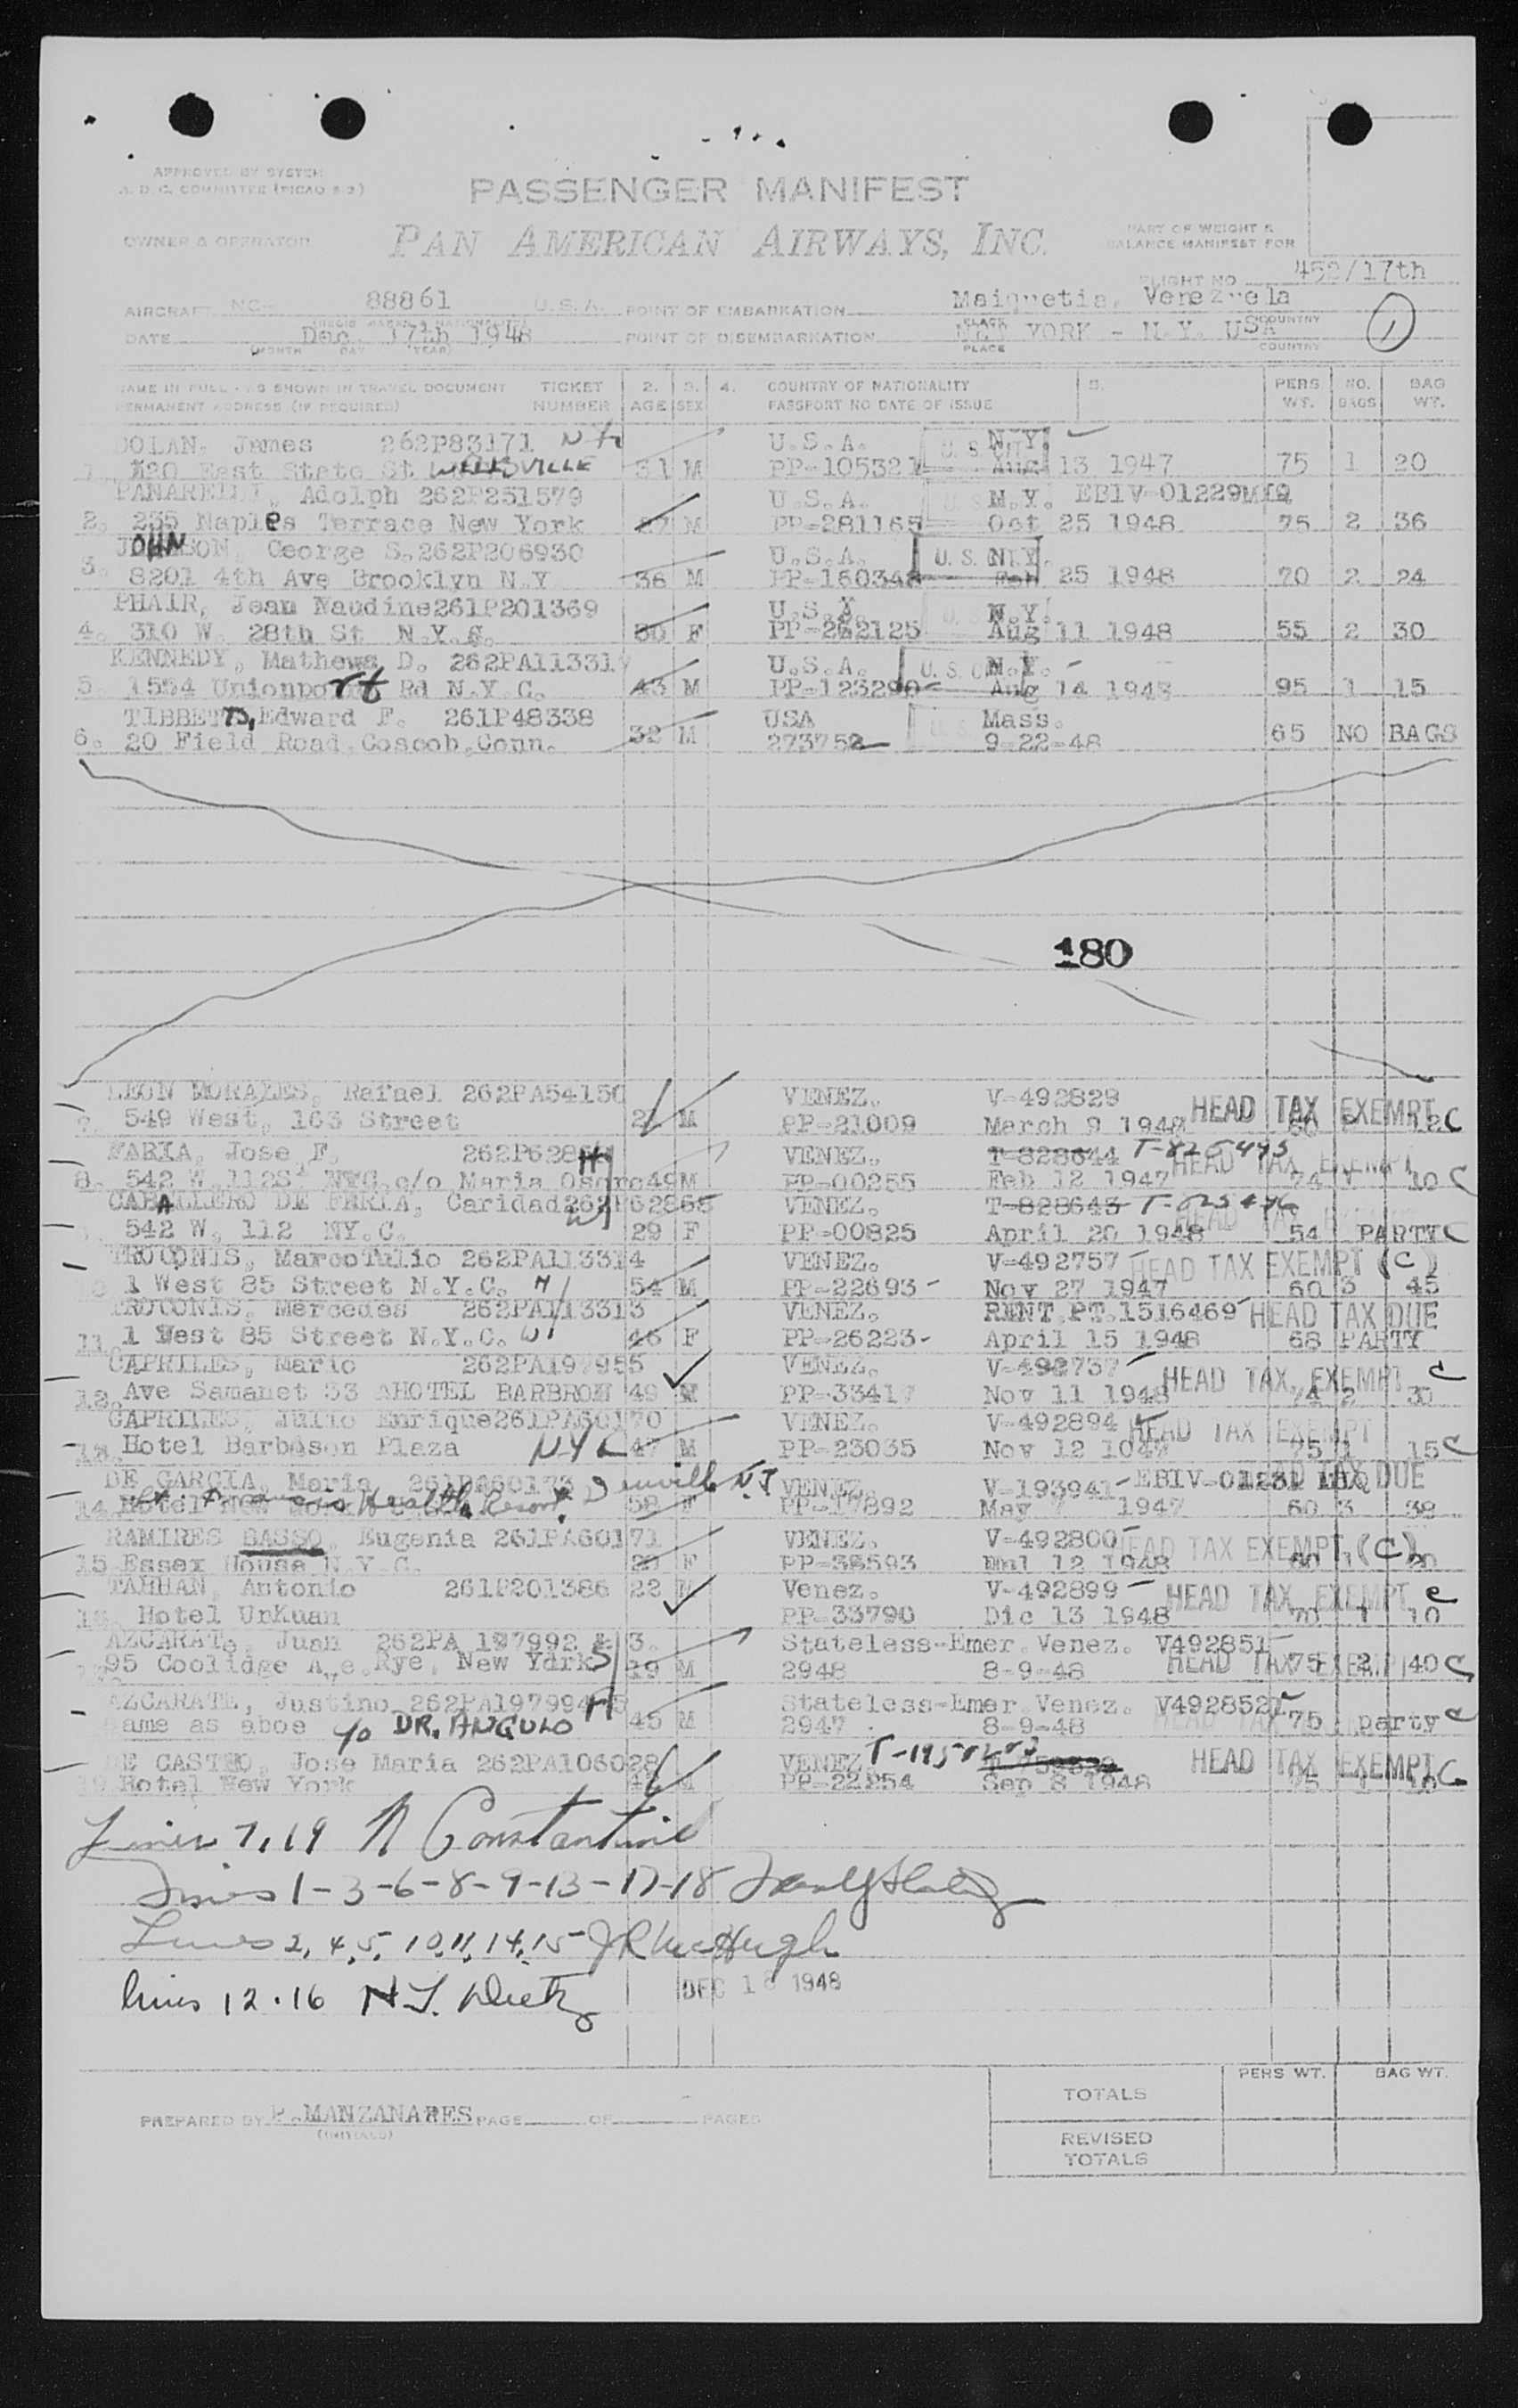 APPROVED BY SYSTEM
A.D.C. COMMITTEE (PICAO 8-2)
PASSENGER MANIFEST
OWNER & OPERATOR PAN AMERICAN AIRWAYS, INC. PART OF WEIGHT &
BALANCE MANIFEST FOR
FLIGHT NO. 452/17th
AIRCRAFT NC- 88861 U.S.A. POINT OF EMBARKATION Maiquetia, Venezuela
PLACE COUNTRY
DATE Dec. 17th 1948 POINT OF DISEMBARKATION NEW YORK - N.Y. USA 1
(MONTH DAY YEAR) PLACE COUNTRY
NAME IN FULL - AS SHOWN IN TRAVEL DOCUMENT TICKET 2. 3. 4. COUNTRY OF NATIONALITY 5. PERS NO. BAG
PERMANENT ADDRESS (IF REQUIRED) NUMBER AGE SEX PASSPORT NO DATE OF ISSUE WT. BAGS WT.
DOLAN, James 262P83171 U.S.A. N.Y.
1. 120 East State St WELLSVILLE 31 M PP-105321 Aug 13 1947 75 1 20
PANARELLI, Adolph 262P251579 U.S.A. N.Y. EBIV-01229MIQ
2. 235 Naples Terrace New York 27 M PP-281165 Oct 25 1948 75 2 36
JOHNSON, George S. 262P206930 U.S.A. U.S. N.Y.
3. 8201 4th Ave Brooklyn N.Y 36 M PP-160348 Feb 25 1948 70 2 24
PHAIR, Jean Naudine 261P201369 U.S.A. N.Y.
4. 310 W. 28th St N.Y.C. 30 F PP-262125 Aug 11 1948 55 2 30
KENNEDY, Mathews D. 262PA113319 U.S.A. U.S. N.Y.
5. 1554 Unionport Rd N.Y.C. 43 M PP-123290 Aug 14 1948 95 1 15
TIBBETTS, Edward F. 261P48338 USA Mass.
6. 20 Field Road, Coscob, Conn. 32 M 273752 9-22-48 65 NO BAGS
180
LEON MORALES, Rafael 262PA54150 VENEZ. V-492829 HEAD TAX EXEMPT
7. 549 West, 163 Street M PP-21009 March 9 1948 C
FARIA, Jose F. VENEZ. T-828644 T-825495 HEAD TAX EXEMPT
8. 542 W. 112S NYC. c/o Maria Osorc 49 M PP-00255 Feb 12 1947 74 1 10 C
CABALLERO DE FERIA, Caridad 262P62865 VENEZ. T-828643
542 W. 112 NY.C. 29 F PP-00825 April 20 1948 54 PARTY C
TROCONIS, MarcoTulio 262PA113314 VENEZ. V-492757 HEAD TAX EXEMPT (C)
1 West 85 Street N.Y.C. H 54 M PP-22693 Nov 27 1947 60 3 45
TROCONIS, Mercedes 262PA113313 VENEZ. RENT.PT.1516469 HEAD TAX DUE
11. 1 West 85 Street N.Y.C. W 46 F PP-26223 April 15 1948 68 PARTY
CAPRILES, Mario 262PA197955 VENEZ. V-492737 HEAD TAX EXEMPT C
12. Ave Samanet 33 HOTEL BARBRON 49 M PP-33417 Nov 11 1948 74 2 30
CAPRILES, Julio Enrique 261PA60170 VENEZ. V-492894 HEAD TAX EXEMPT
13. Hotel Barbason Plaza NYC 47 M PP-23035 Nov 12 75 1 15 C
DE GARCIA, Maria 261PA60173 Denville N.J VENEZ. V-193941 EBIV-01231 MIQ HEAD TAX DUE
14. Health Resort 58 F PP-17892 May 7 1947 60 3 38
RAMIRES BASSO, Eugenia 261PA60171 VENEZ. V-492800 HEAD TAX EXEMPT (C)
15 Essex House N.Y.C. F PP-38593 12 1948 20
TARHAN, Antonio 261P201386 22 M Venez. V-492899 HEAD TAX EXEMPT C
16. Hotel UrKuan PP-33790 Dic 13 1948 70 1 10
AZCARATE, Juan 262PA 197992 & 3. Stateless-Emer. Venez. V492851
95 Coolidge Ave. Rye, New York S 19 M 2948 8-9-48 HEAD TAX EXEMPT 75 2 40 C
AZCARATE, Justino 262PA197994 H Stateless-Emer Venez. V492852
Same as aboe c/o DR. ANGULO 45 M 2947 8-9-48 75 party C
DE CASTRO, Jose Maria 262PA106028 VENEZ HEAD TAX EXEMPT
19 Hotel New York M PP-22854 Sep 8 1948 C
Lines 7, 19 N Constantine
Lines 1-3-6-8-9-13-17-18
Lines 2, 4, 5, 10, 11, 14, 15 - J R McHugh
DEC 1 1948
lines 12.16 N.J. Dietz
PERS WT. BAG WT.
TOTALS
PREPARED BY P. MANZANARES PAGE OF PAGES
(INITIALS)
REVISED
TOTALS